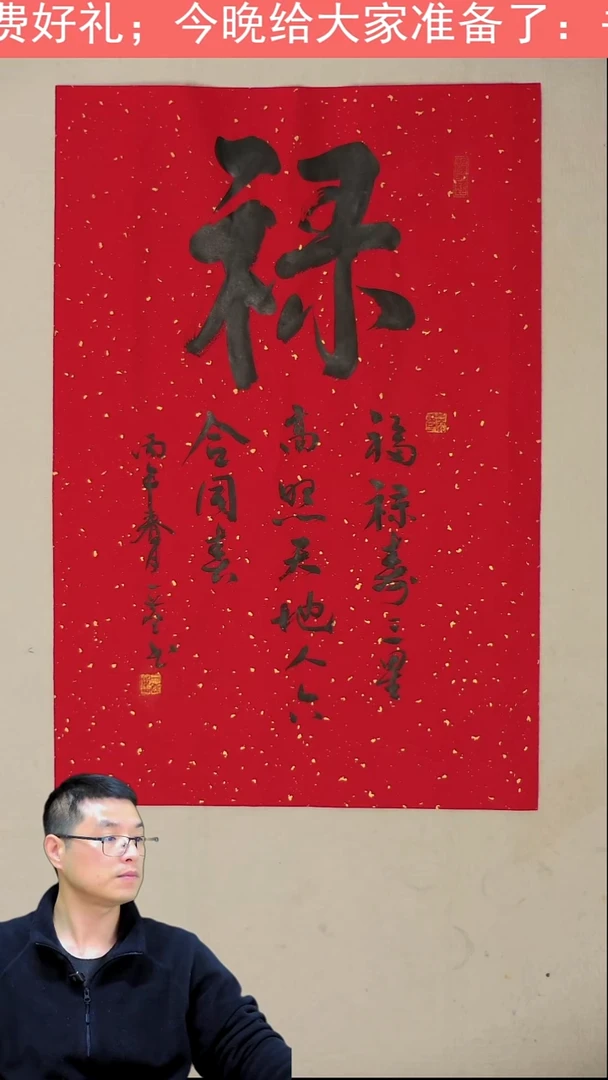 费好礼；今晚给大家准备了：
禄
福禄寿三星
高照天地人六
合同春
丙午春月一
书